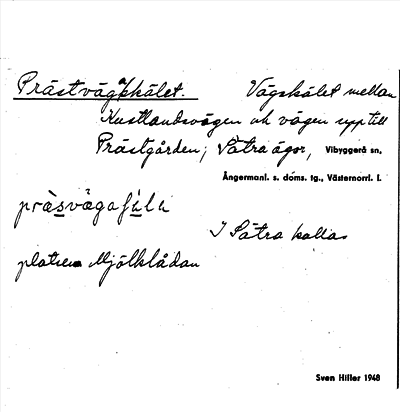 Prästvägaskälet. Vägskälet mellan
Kustlandsvägen och vägen upp till
Prästgården; Sätra ägor, Vibyggerå sn,
Ångermanl. s. doms. tg., Västernorrl. l.
I Sätra kallas
platsen Mjölklådan
Sven Hiller 1948